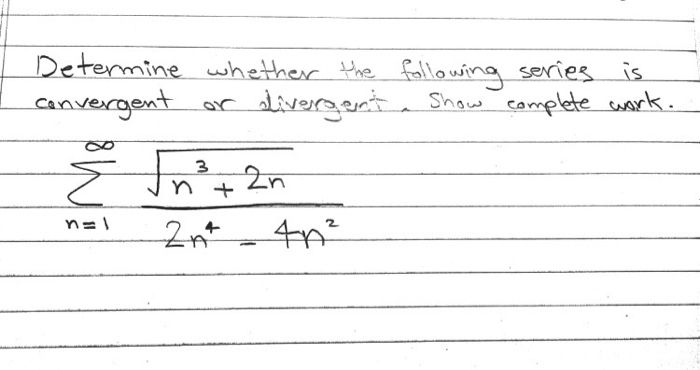 Determine whether the following series is
convergent or divergent. Show complete work.
∞
∑ √(n³ + 2n)
n=1 2n⁴ - 4n²